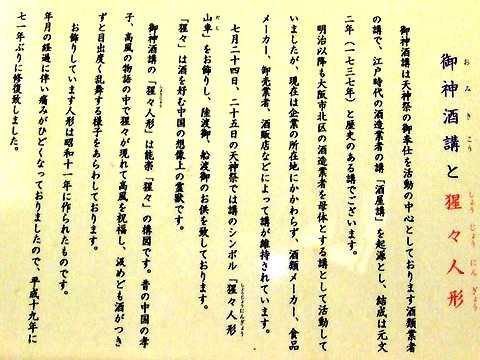 御神酒講と猩々人形
おみきこう
しょうじょうにんぎょう
御神酒講は天神祭の御奉仕を活動の中心としております酒類業者
の講で、江戸時代の酒造業者の講「酒屋講」を起源とし、結成は元文
二年（一七三七年）と歴史のある講でございます。
明治以降も大阪市北区の酒造業者を母体とする講として活動して
いましたが、現在は企業の所在地にかかわらず、酒類メーカー、食品
メーカー、御売業者、酒販店などによって講が維持されています。
七月二十四日、二十五日の天神祭では講のシンボル「猩々人形
しょうじょうにんぎょう
山車」をお飾りし、陸渡御、船渡御のお供を致しております。
だし
「猩々」は酒を好む中国の想像上の霊獣です。
御神酒講の「猩々人形」は能楽「猩々」の構図です。昔の中国の孝
しょうじょう
子、高風の物語の中で猩々が現れて高風を祝福し、汲めども酒がつき
ずと目出度く乱舞する様子をあらわしております。
お飾りしています人形は昭和十一年に作られたものです。
年月の経過に伴い痛みがひどくなっておりましたので、平成十九年に
七一年ぶりに修復致しました。